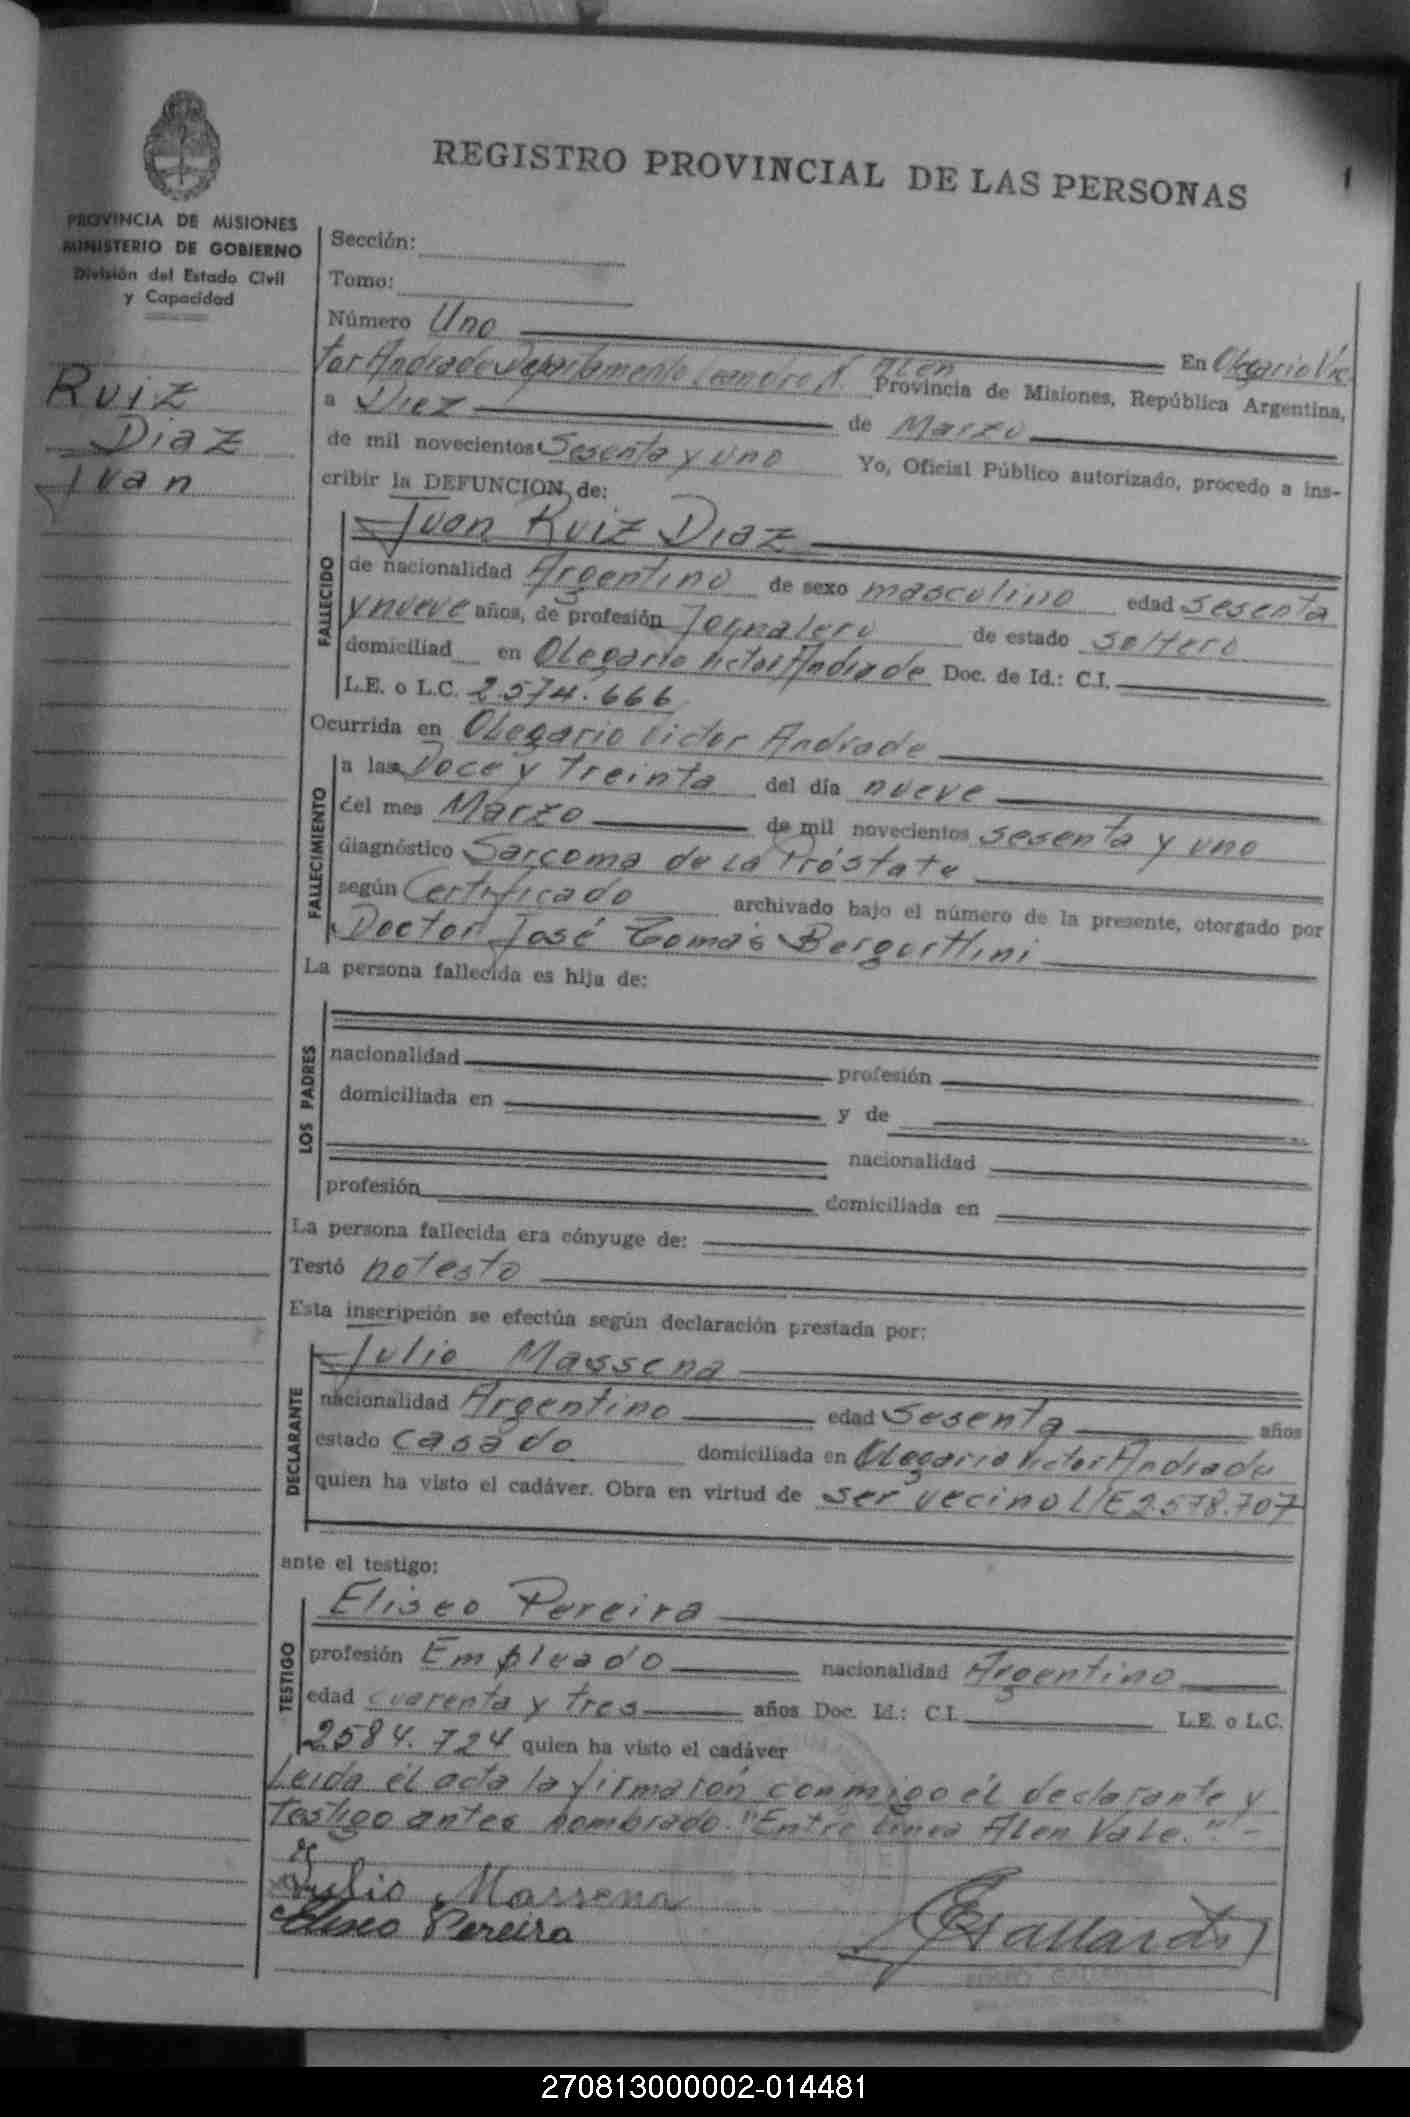 REGISTRO PROVINCIAL DE LAS PERSONAS
1
PROVINCIA DE MISIONES
MINISTERIO DE GOBIERNO
División del Estado Civil
y Capacidad
Ruiz
Diaz
Juan
Sección:
Tomo:
Número Uno En Olegario Víc-
tor Andrade Departamento Leandro N. Alen Provincia de Misiones, República Argentina,
a Diez de Marzo
de mil novecientos Sesenta y uno Yo, Oficial Público autorizado, procedo a ins-
cribir la DEFUNCION de:
Juan Ruiz Diaz
FALLECIDO
de nacionalidad Argentino de sexo masculino edad sesenta
y nueve años, de profesión Jornalero de estado soltero
domiciliad en Olegario victor Andrade Doc. de Id.: C.I.
L.E. o L.C. 2.574.666
Ocurrida en Olegario victor Andrade
FALLECIMIENTO
a las Doce y treinta del día nueve
del mes Marzo de mil novecientos sesenta y uno
diagnóstico Sarcoma de La Próstata
según Certificado archivado bajo el número de la presente, otorgado por
Doctor José Tomás
La persona fallecida es hija de:
LOS PADRES
nacionalidad profesión
domiciliada en y de
nacionalidad
profesión domiciliada en
La persona fallecida era cónyuge de:
Testó no testo
Esta inscripción se efectúa según declaración prestada por:
Julio Massena
DECLARANTE
nacionalidad Argentino edad Sesenta años
estado casado domiciliada en Olegario victor Andrade
quien ha visto el cadáver. Obra en virtud de ser vecino L/E 2.578.707
ante el testigo:
Eliseo Pereira
TESTIGO
profesión Empleado nacionalidad Argentino
edad cuarenta y tres años Doc. Id.: C.I. L.E. o L.C.
2584.724 quien ha visto el cadáver
Leida él acta la firmaron conmigo él declarante y
Testigo antes nombrado. "Entre linea Alen Vale."-
Julio Massena
Eliseo Pereira
Gallardo
270813000002-014481